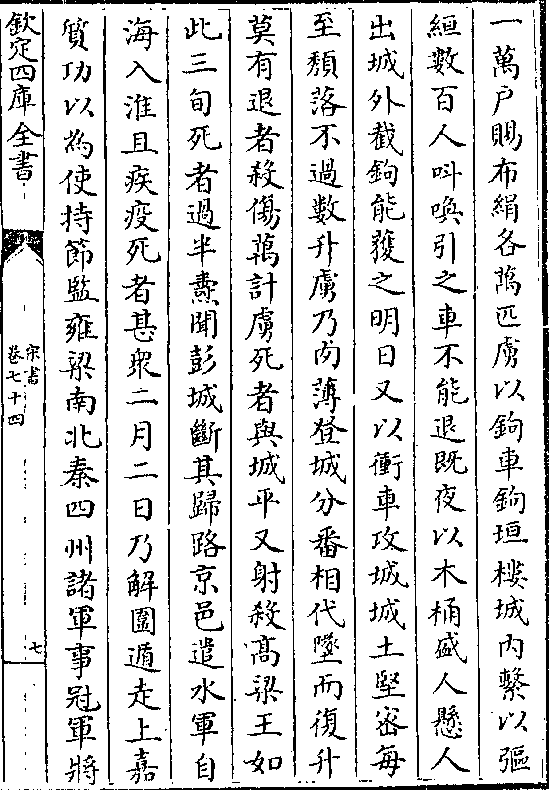 一萬戶賜布絹各萬匹虜以鉤車鉤垣樓城内繫以彄
絙數百人叫喚引之車不能退既夜以木桶盛人懸
出城外截鉤能獲之明日又以衝車攻城城土堅密每
至頽落不過數升虜乃肉薄登城分番相代墜而復升
莫有退者殺傷萬計虜死者與城平又射殺髙梁王如
此三旬死者過半燾聞彭城斷其歸路京邑遣水軍自
海入淮且疾疫死者甚衆二月二日乃解圍遁走上嘉
質功以為使持節監雍梁南北秦四州諸軍事冠軍將
欽定四庫全書
宋書
卷七十四
七